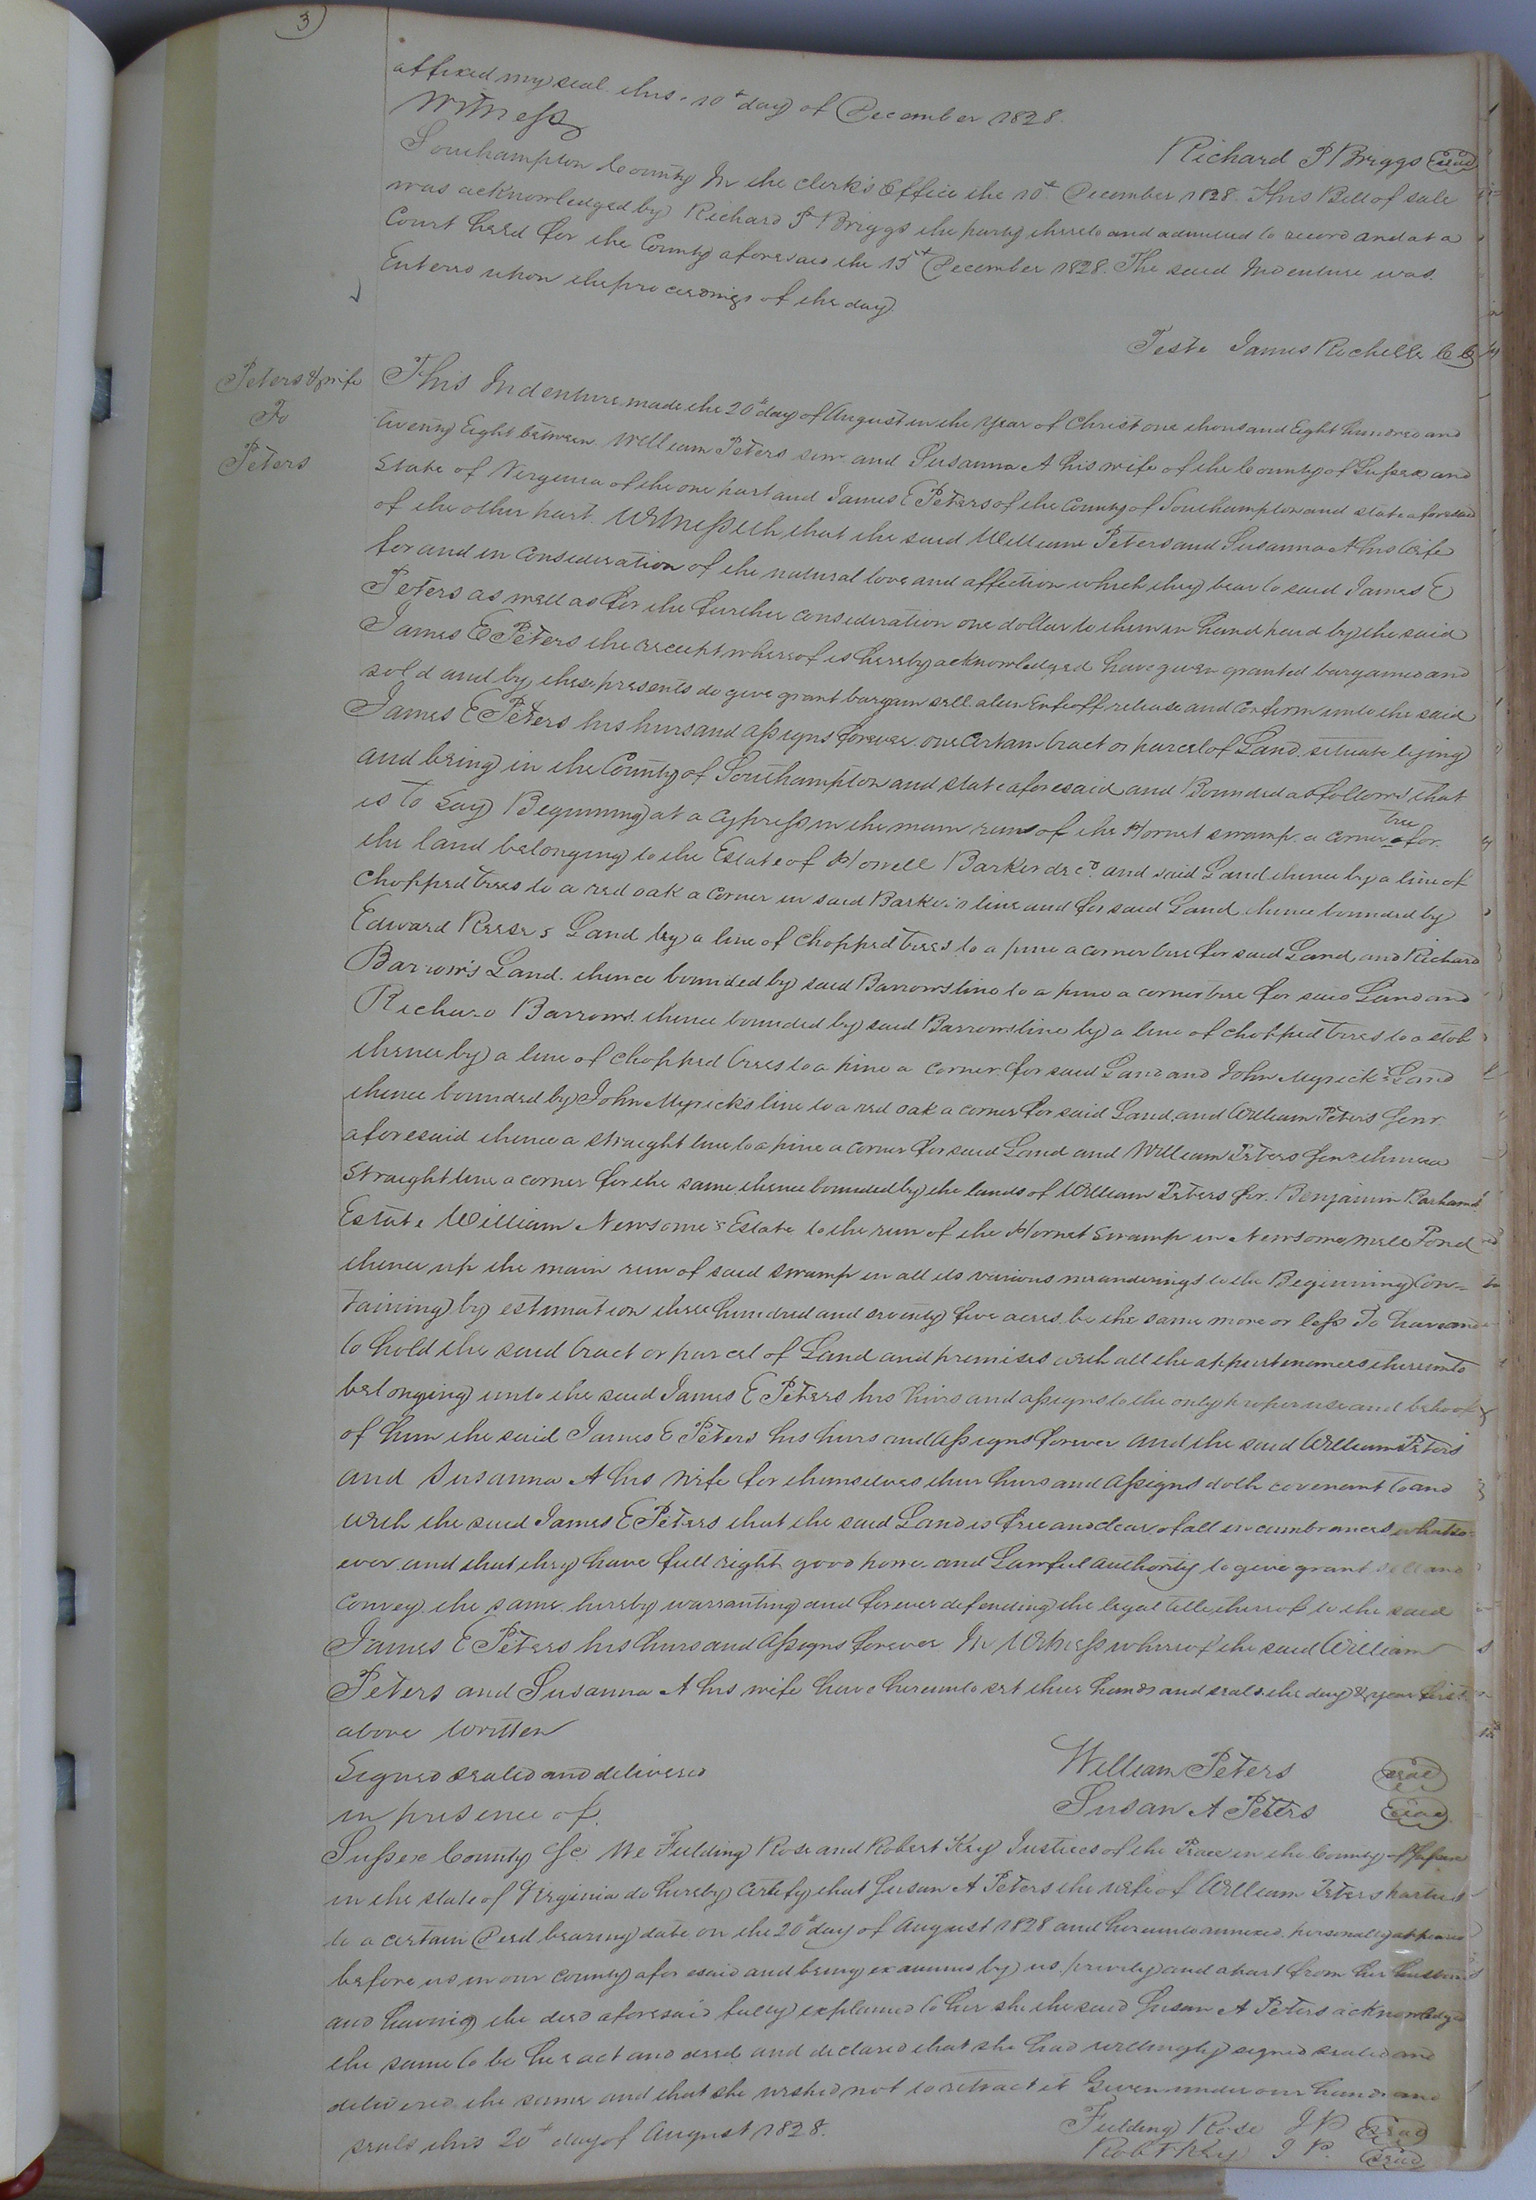 3
affixed my seal this 10th day of December 1828.
Witness
Richard P Briggs seal
Southampton County In the clerk's Office the 10th December 1828. This Bill of sale
was acknowledged by Richard P Briggs the party thereto and admitted to record and at a
Court held for the County aforesaid the 15th December 1828. The said Indenture was
Entered upon the proceedings of the day
Teste James Rochelle CC
Peters & wife
To
Peters
This Indenture made the 20th day of August in the year of Christ one thousand Eight hundred and
twenty Eight between William Peters senr and Susanna A his wife of the County of Sussex and
State of Virginia of the one part and James E Peters of the County of Southampton and state aforesaid
of the other part. Witnesseth that the said William Peters and Susanna A his Wife
for and in consideration of the natural love and affection which they bear to said James E
Peters as well as for the further consideration one dollar to them in hand paid by the said
James E Peters the receipt whereof is hereby acknowledged have given granted bargained and
sold and by these presents do give grant bargain sell alien Enfeoff release and confirm unto the said
James E Peters his heirs and assigns forever one certain tract or parcel of Land situate lying
and being in the County of Southampton and state aforesaid and Bounded as follows that
is to say Beginning at a cypress in the main run of the Hornet swamp a corner tree for
the land belonging to the Estate of Howell Barker decd and said Land thence by a line of
chopped trees to a red oak a corner in said Barker's line and for said Land thence bounded by
Edward Reese's Land by a line of chopped trees to a pine a corner tree for said Land and Richard
Barrow's Land. thence bounded by said Barrows line to a pine a corner tree for said Land and
Richard Barrows. thence bounded by said Barrows line by a line of chopped trees to a stob
thence by a line of chopped trees to a pine a corner for said Land and John Myrick's Land
thence bounded by John Myrick's line to a red oak a corner for said Land and William Peters Senr
aforesaid thence a straight line to a pine a corner for said Land and William Peters Senr thence a
Straight line a corner for the same thence bounded by the lands of William Peters Sr. Benjamin Barham's
Estate William Newsome's Estate to the run of the Hornet Swamp in Newsoms mill Pond
thence up the main run of said swamp in all its various meanderings to the Beginning Con-
taining by estimation three hundred and seventy five acres be the same more or less To have and
to hold the said tract or parcel of Land and premises with all the appurtenances thereunto
belonging unto the said James E Peters his heirs and assigns to the only proper use and behoof
of him the said James E Peters his heirs and assigns forever and the said William Peters
and Susanna A his wife for themselves their heirs and assigns doth covenant to and
with the said James E Peters that the said Land is free and clear of all incumbrances whatso-
ever and that they have full right good power and Lawful authority to give grant sell and
convey the same hereby warranting and forever defending the legal title thereof to the said
James E Peters his heirs and assigns forever In Witness whereof the said William
Peters and Susanna A his wife have hereunto set their hands and seals the day & year first
above written
Signed sealed and delivered
in presence of.
William Peters seal
Susan A Peters seal
Sussex County Sc We Fielding Rose and Robert Key Justices of the Peace in the County of Sussex
in the state of Virginia do hereby certify that Susan A Peters the wife of William Peters parties
to a certain Deed bearing date on the 20th day of August 1828 and hereunto annexed personally appeared
before us in our county aforesaid and being examined by us privily and apart from her husband
and having the deed aforesaid fully explained to her she the said Susan A Peters acknowledged
the same to be her act and deed and declared that she had willingly signed sealed and
delivered the same and that she wished not to retract it Given under our hands and
seals this 20th day of August 1828.
Fielding Rose JP seal
Robt Key J P. seal